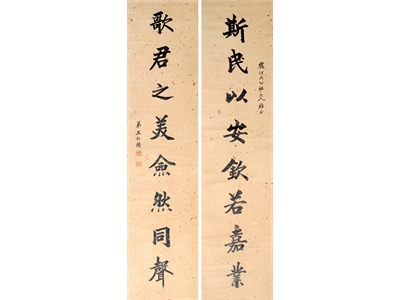 斯民以安欽若嘉業
歌君之美僉然同聲